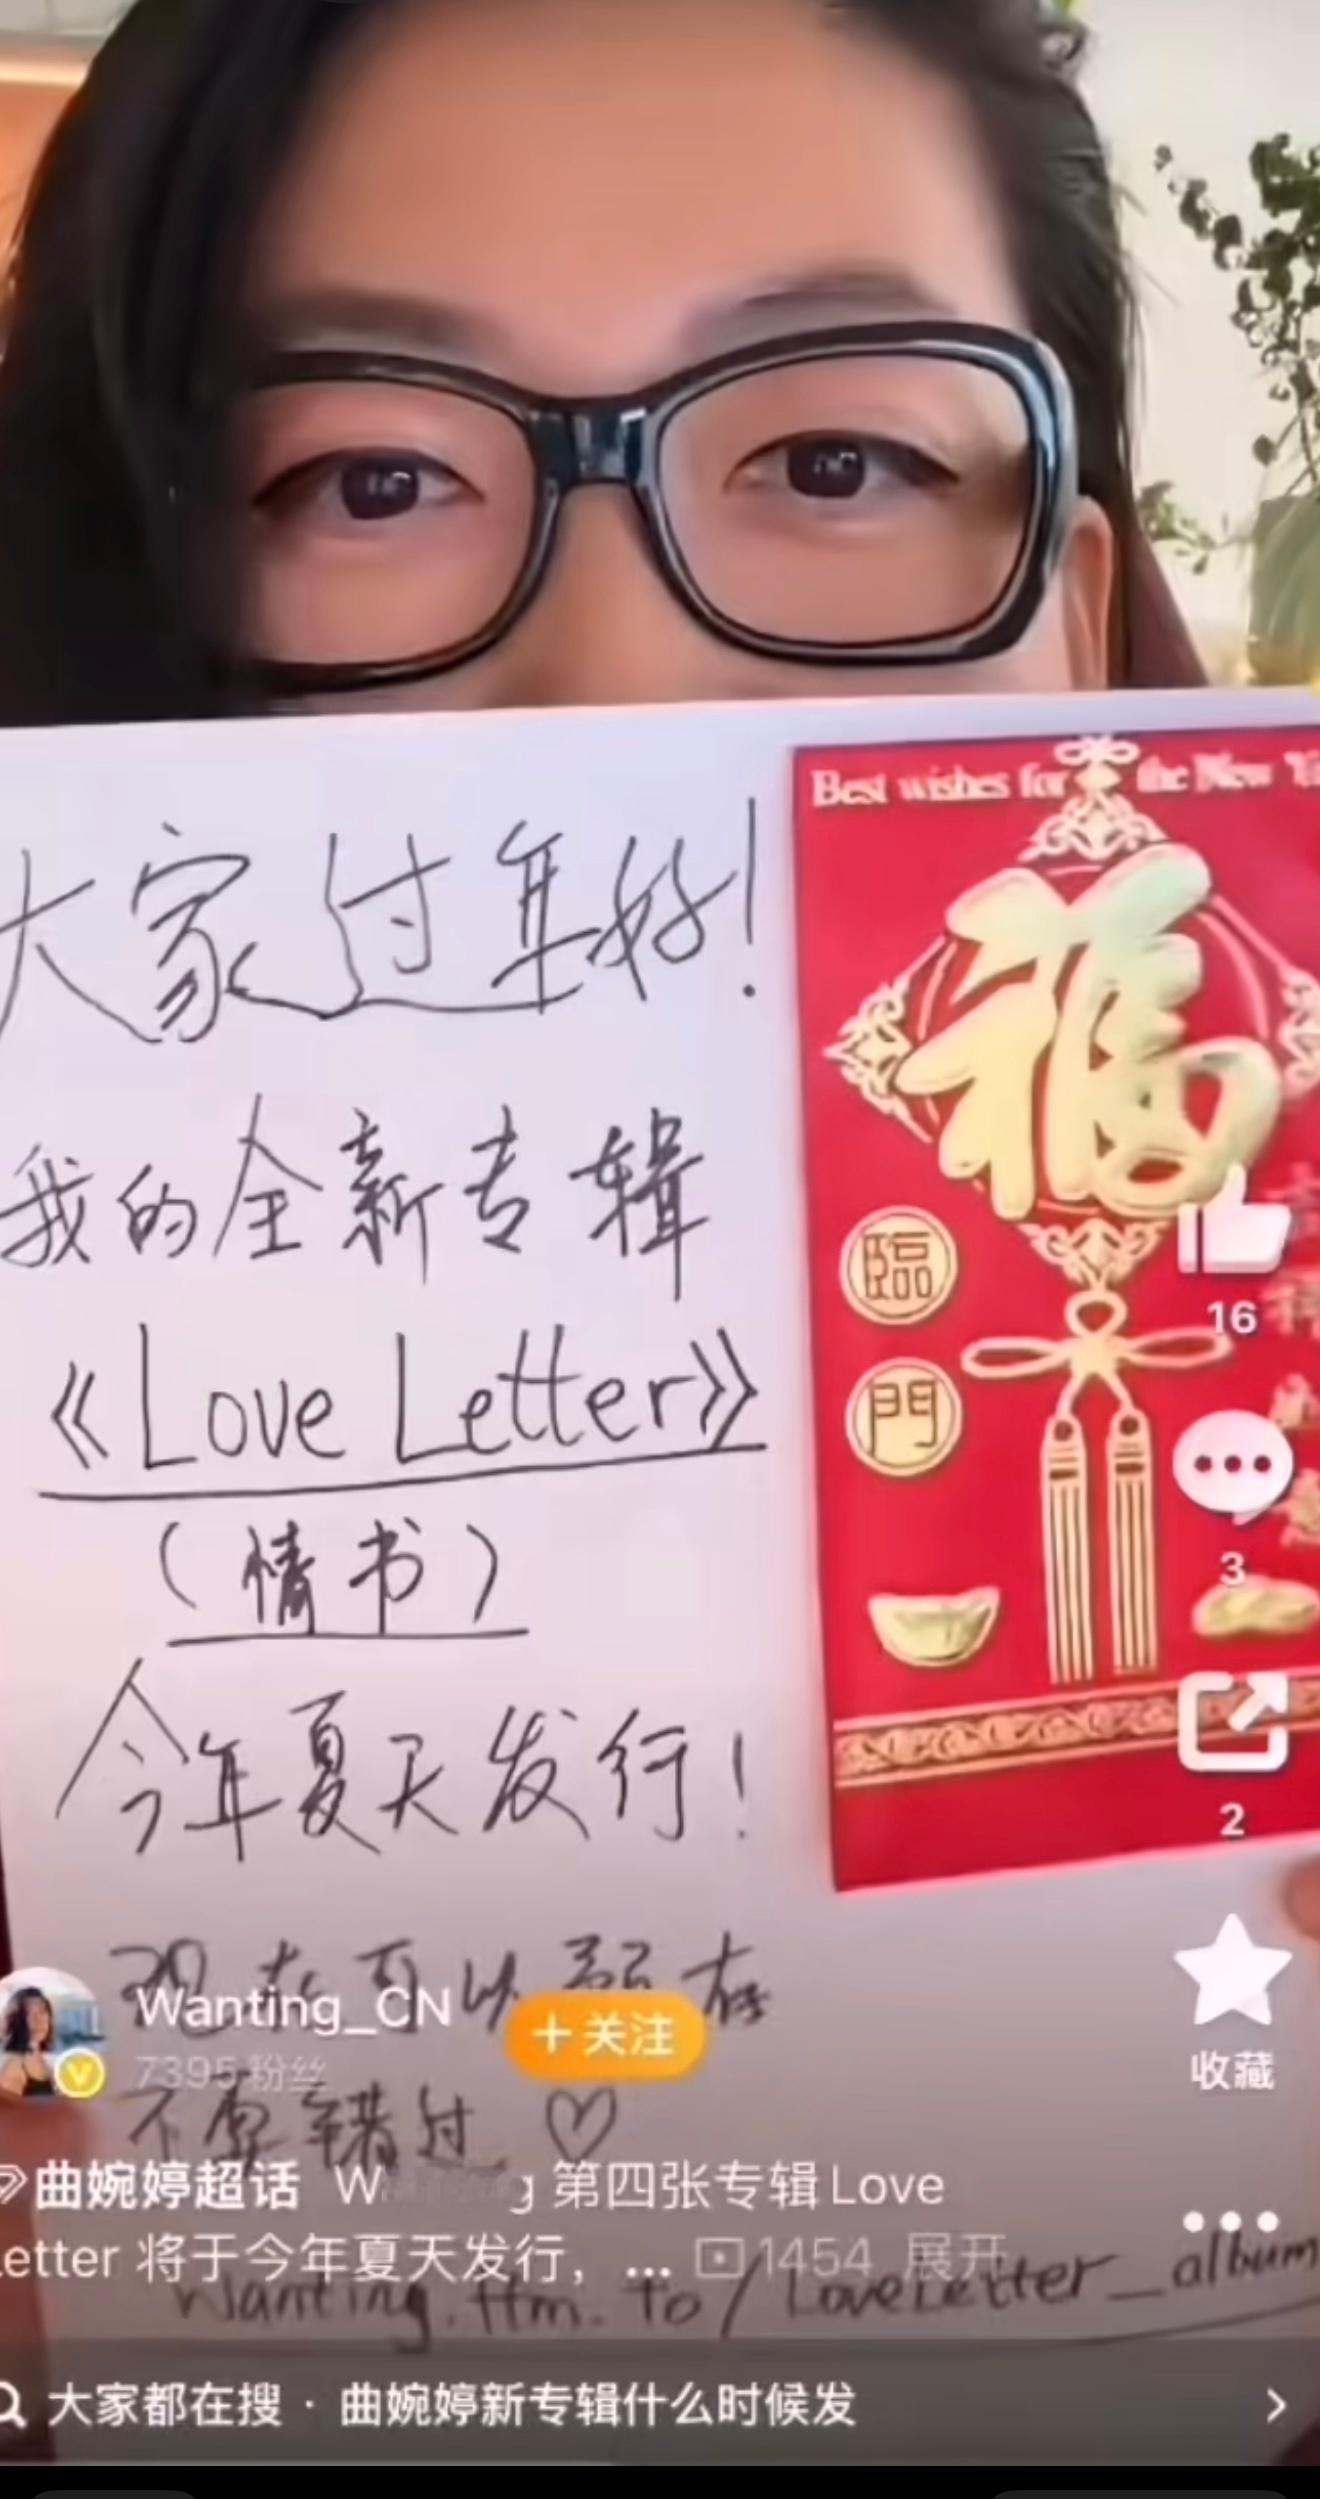 Best wishes for the New
福
臨
門
大家过年好!
我的全新专辑
《Love Letter》
(情书)
今年夏天发行!
现在可以预存
不要错过♡
Wanting.ffm.to/LoveLetter_album
16
3
2
收藏
Wanting_CN
+关注
7395粉丝
曲婉婷超话 第四张专辑Love
etter 将于今年夏天发行，... 1454 展开
大家都在搜 · 曲婉婷新专辑什么时候发